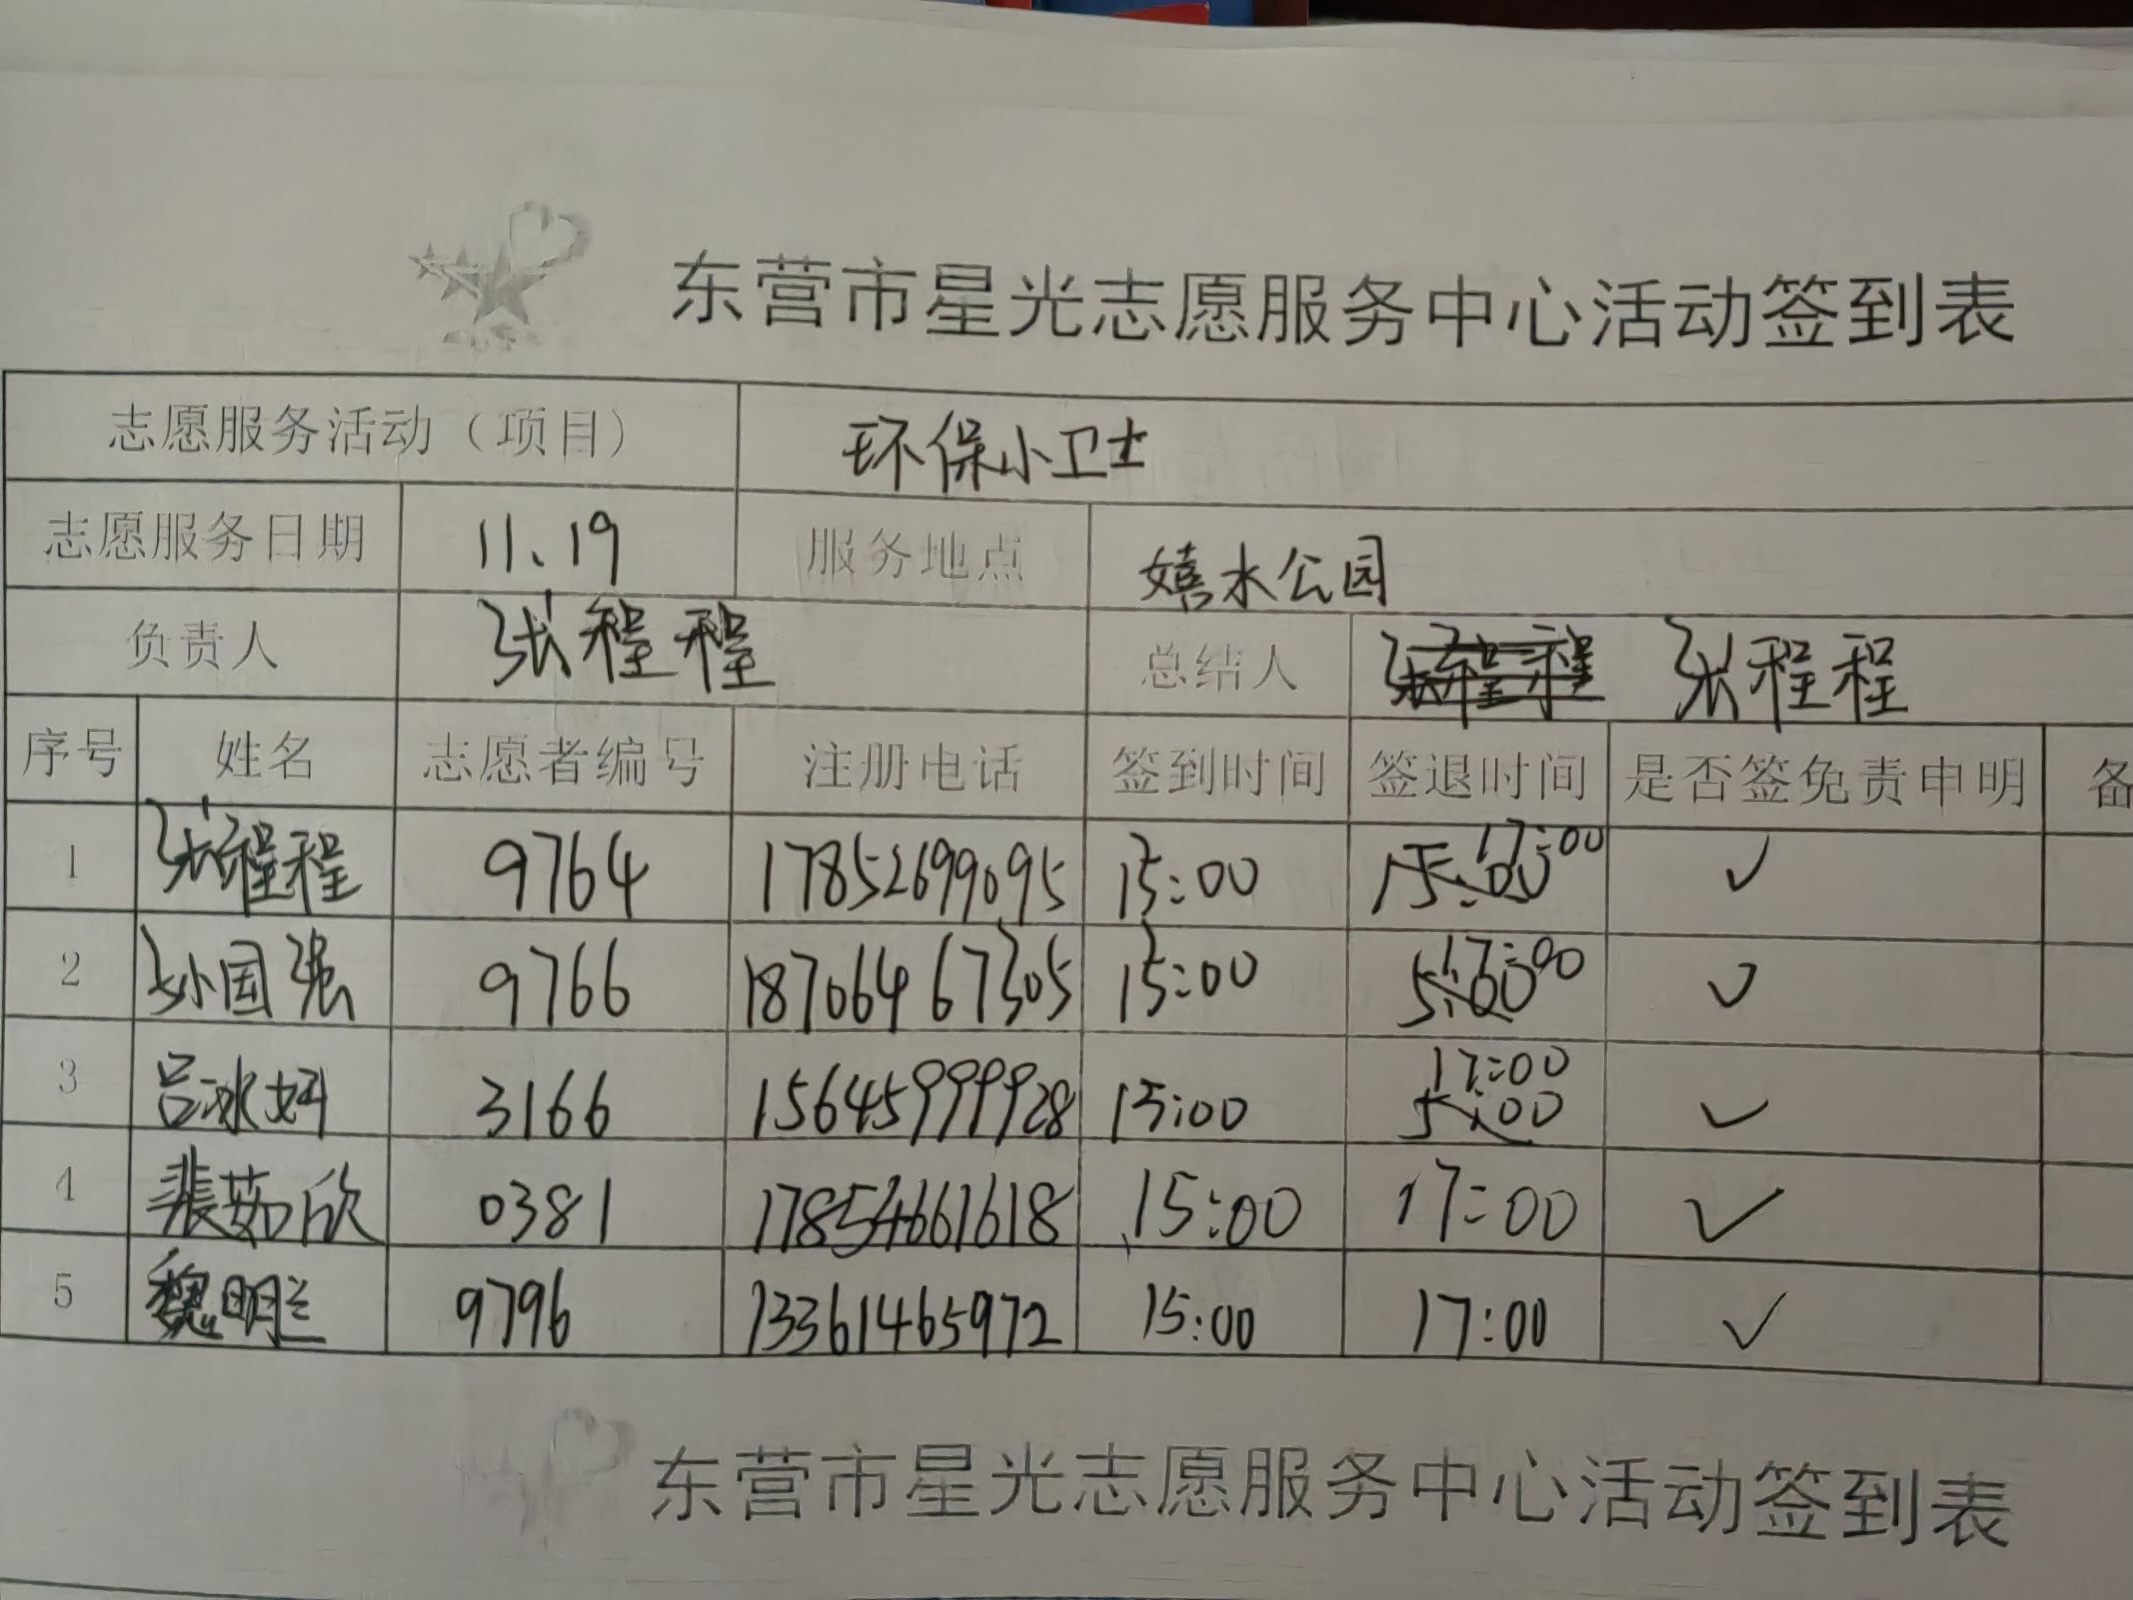 东营市星光志愿服务中心活动签到表
志愿服务活动（项目） 环保小卫士
志愿服务日期 11、19 服务地点 嬉水公园
负责人 张程程 总结人 张程程 张程程
序号 姓名 志愿者编号 注册电话 签到时间 签退时间 是否签免责申明 备
1 张程程 9764 17852699095 15:00 17:00 ✓
2 孙国强 9766 18706467305 15:00 17:00 ✓
3 吕冰妍 3166 15645999928 15:00 17:00 5:00 ✓
4 裴茹欣 0381 17854661618 15:00 17:00 ✓
5 魏明兰 9796 13361465972 15:00 17:00 ✓
东营市星光志愿服务中心活动签到表